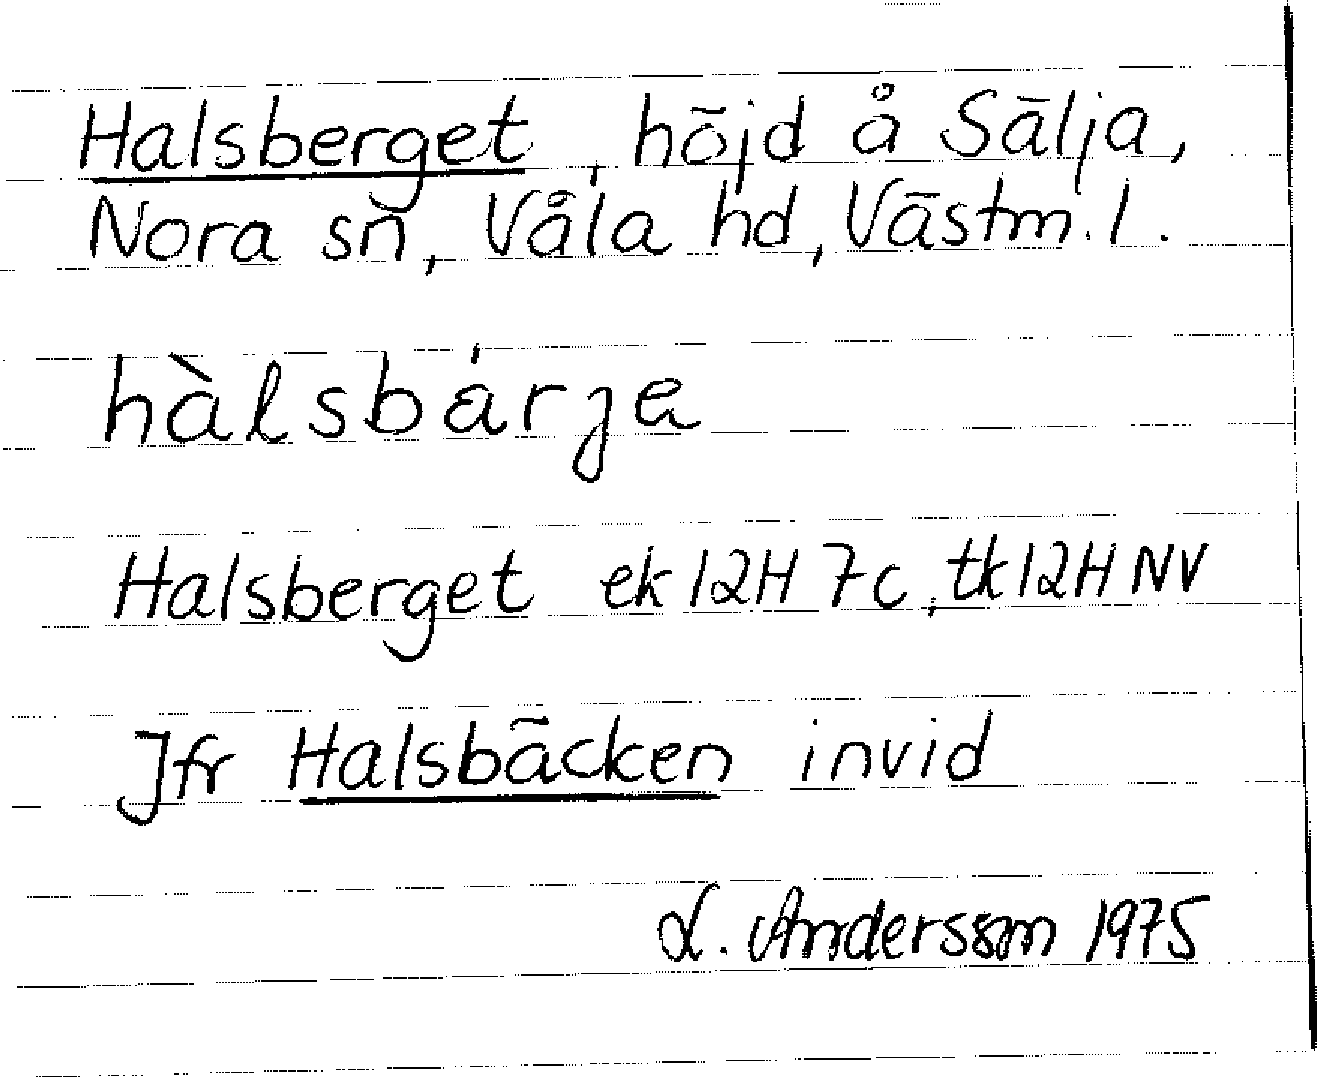 Halsberget, höjd å Sälja,
Nora sn, Våla hd, Västm. l.
hàlsbárȷe
Halsberget ek 12H 7c, tk 12H NV
Jfr Halsbäcken invid
L. Andersson 1975